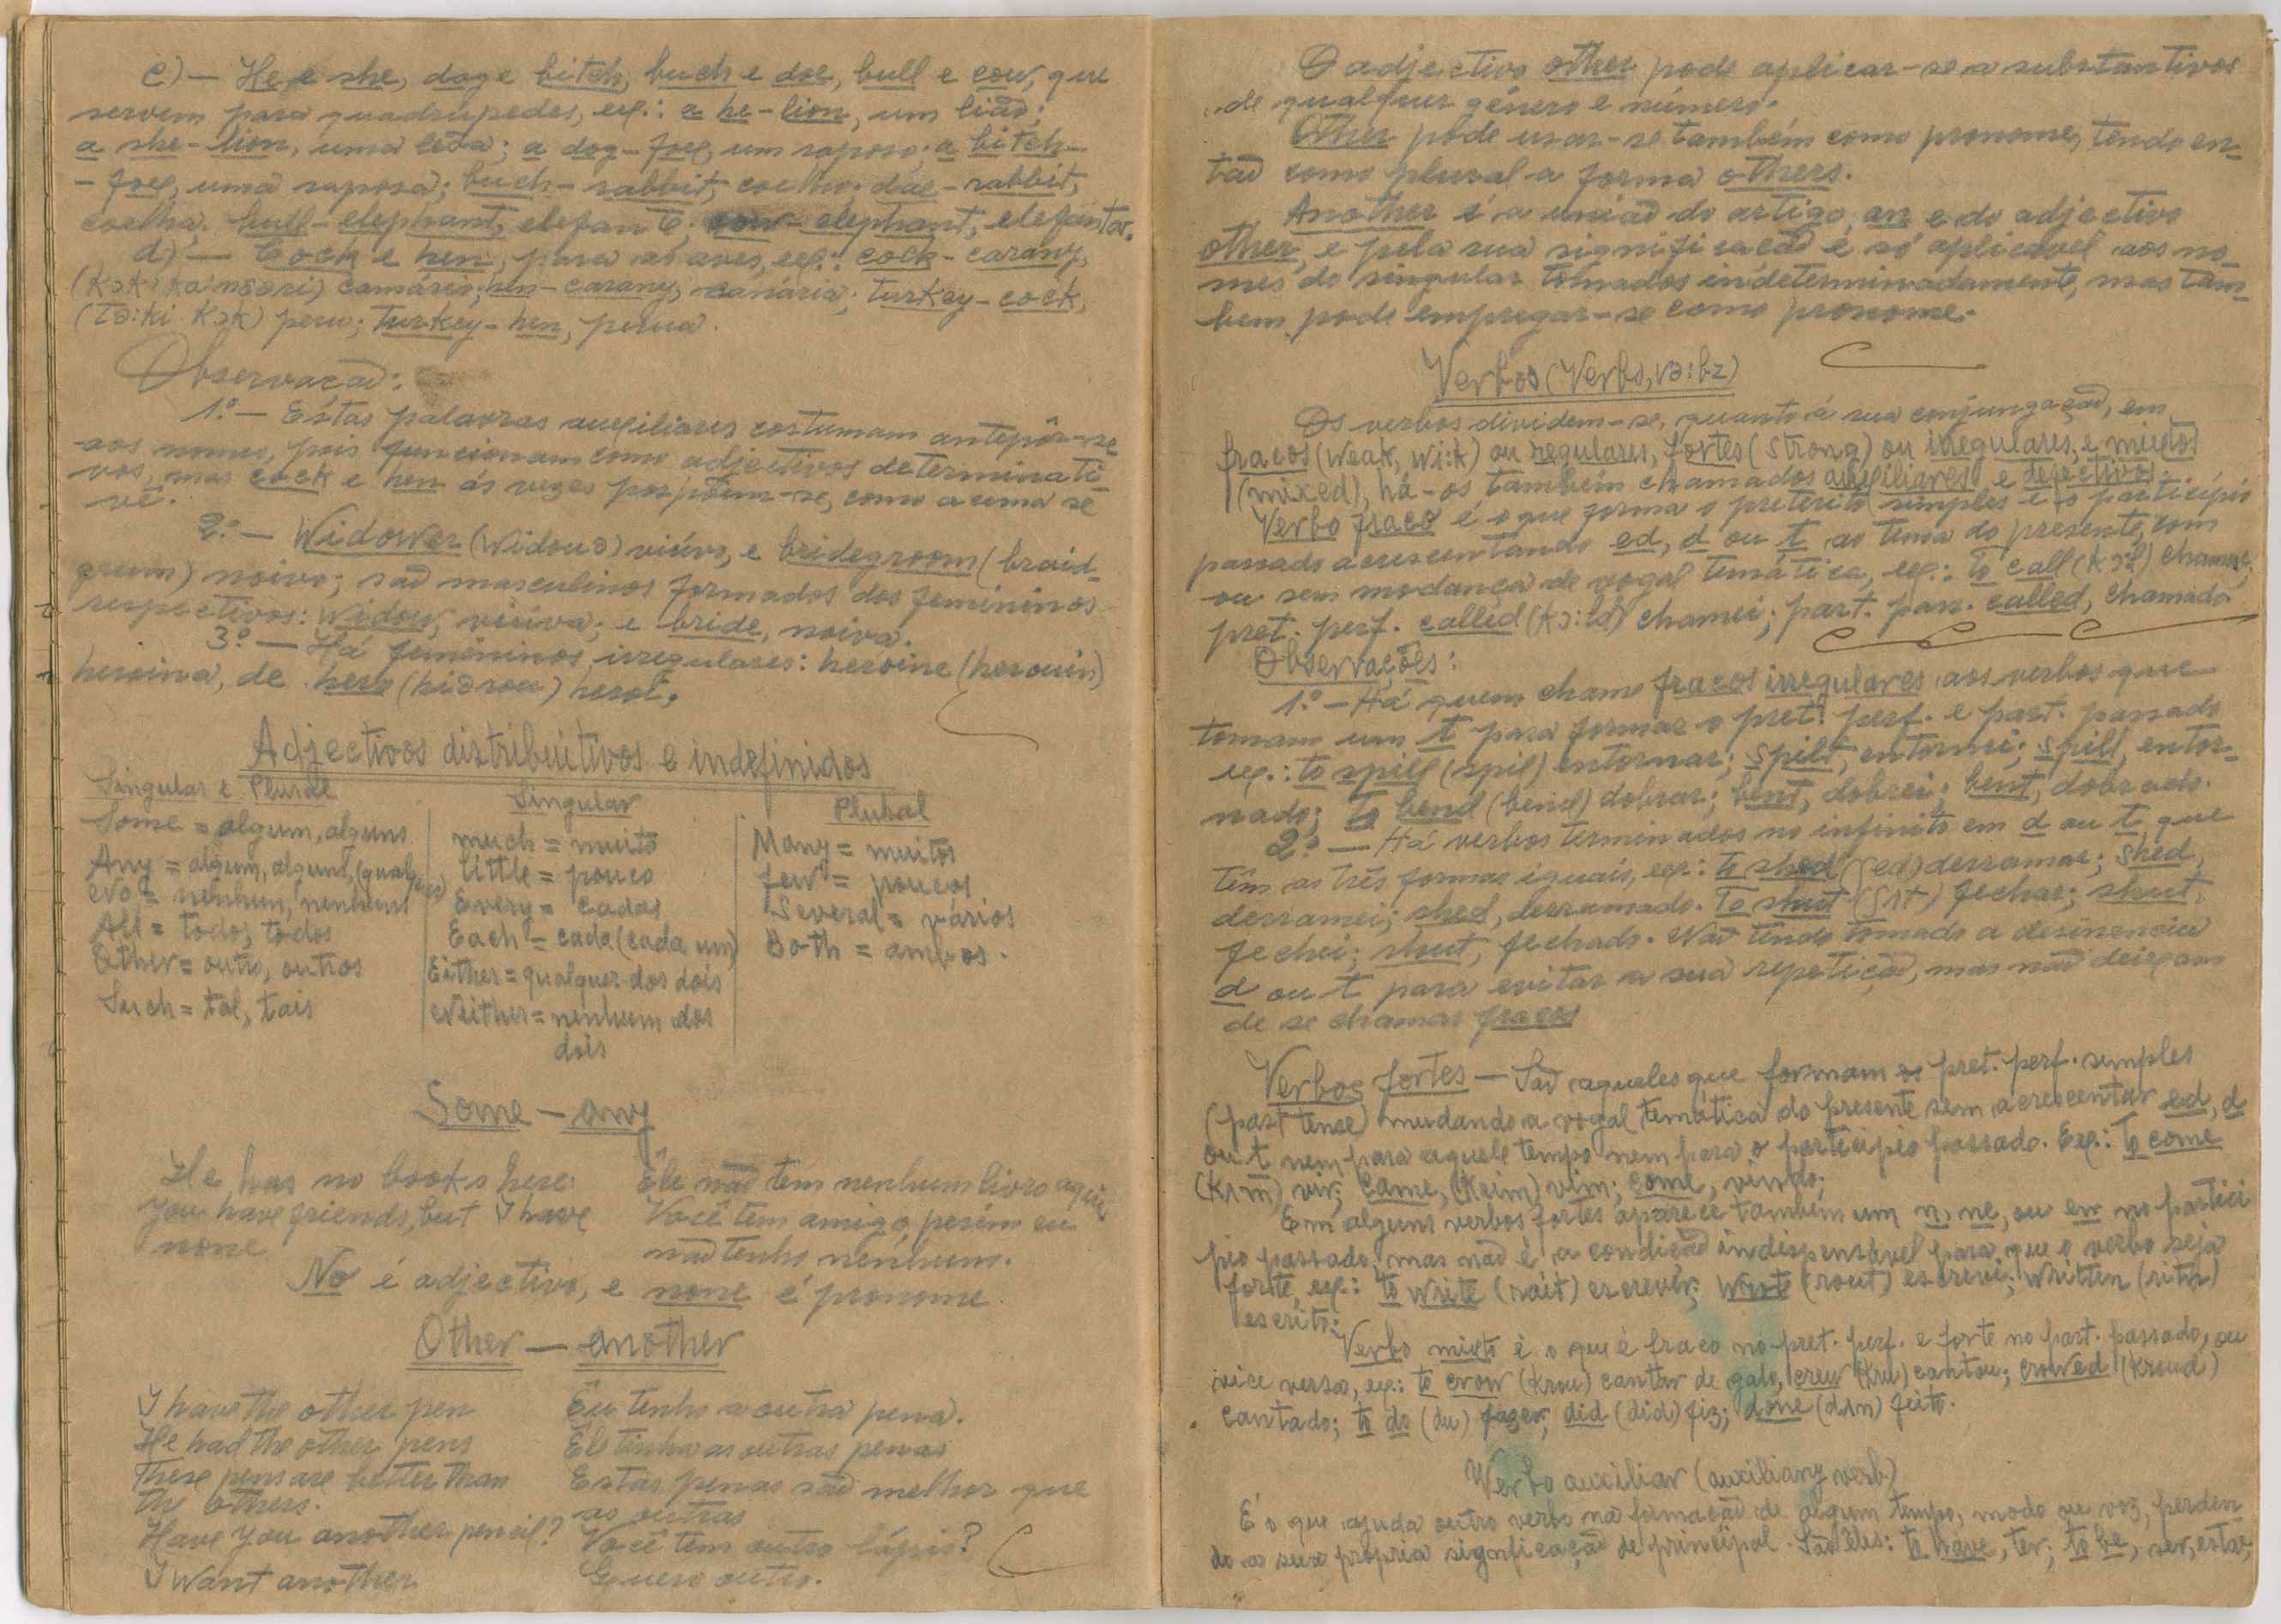 c) — He e she, dog e bitch, buch e doe, bull e cow, que
servem para quadrúpedes, ex.: a he-lion, um lião;
a she-lion, uma leôa; a dog-fox, um raposo; a bitch-
-fox, uma raposa; buch-rabbit, coelho; doe-rabbit,
coelha; bull-elephant, elefante; cow-elephant, elefanta.
d) — Cock e hen, para as aves, ex.: cock-carany,
(kɔk) canário; hen-carany, canária; turkey-cock,
(tə:ki kɔk) peru; turkey-hen, perua.
Observação:
1.º — Estas palavras auxiliares costumam antepôr-se
aos nomes, pois funcionam como adjectivos determinati-
vos, mas cock e hen ás vezes pospõem-se, como acima se
vê.
2.º — Widower (widouə) viúvo, e bridegroom (braid-
grum) noivo; são masculinos formados dos femininos
respectivos: widow, viúva; e bride, noiva.
3.º — Há femininos irregulares: heroine (herouin)
heroina, de hero (hiərou) heroi.
Adjectivos distribuitivos e indefinidos
Singular e Plural
Some = algum, alguns
Any = algum, alguns, (qualquer)
No = nenhum, nenhuns
All = todo, todos
Other = outro, outros
Such = tal, tais
Singular
much = muito
little = pouco
Every = cada
Each = cada (cada um)
Either = qualquer dos dois
Neither = nenhum dos
dois
Plural
Many = muitos
few = poucos
Several = vários
Both = ambos.
Some — any
He has no books here. Êle não tem nenhum livro aqui.
You have friends, but I have Você tem amigo, porém eu
none não tenho nenhum.
No é adjectivo, e none é pronome
Other — another
I have the other pen Eu tenho a outra pena.
He had the other pens Êle tinha as outras penas
These pens are better than Estas penas são melhor que
the others. as outras
Have you another pencil? Você tem outro lápis?
I want another Quero outro.
O adjectivo other pode aplicar-se a substantivos
de qualquer género e número.
Other pode usar-se também como pronome, tendo en-
tão como plural a forma others.
Another é a união do artigo an e do adjectivo
other, e pela sua significação é só aplicável aos no-
mes do singular tomados indeterminadamente, mas tam-
bem pode empregar-se como pronome.
Verbos (Verbs, və:bz)
Os verbos dividem-se, quanto á sua conjungação, em
fracos (weak, wi:k) ou regulares, fortes (strong) ou irregulares, e mixtos
(mixed), há-os também chamados auxiliares e defectivos.
Verbo fraco é o que forma o preterito simples e o particípio
passado acrescentando ed, d ou t ao tema do presente, com
ou sem modança de vogal temática, ex.: to call (kɔ:l) chamar;
pret. perf. called (kɔ:ld) chamei; part. pas. called, chamado
Observações:
1.º — Há quem chame fracos irregulares aos verbos que
tomam um t para formar o pret. perf. e part. passado
ex.: to spill (spil) entornar; spilt, entornei; spilt, entor-
nado; to bend (bend) dobrar; bent, dobrei; bent, dobrado.
2.º — Há verbos terminados no infinito em d ou t que
têm as três formas iguais, ex.: to shed (ʃed) derramar; shed,
derramei; shed, derramado. To shut (ʃʌt) fechar; shut,
fechei; shut, fechado. Não tendo tomado a desinencia
d ou t para evitar a sua repetição, mas não deixam
de se chamar fracos
Verbos fortes — São aqueles que formam os pret. perf. simples
(past tense) mudando a vogal temática do presente sem acrescentar ed, d
ou t nem para aquele tempo nem para o particípio passado. Ex.: to come
(kʌm) vir; came, (keim) vim; come, vindo;
Em alguns verbos fortes aparece também um n, ne, ou en no partici
pio passado, mas não é a condição indispensável para que o verbo seja
forte, ex.: to write (rait) escrever; wrote (rout) escrevi; written (ritn)
escrito;
Verbo mixto é o que é fraco no pret. perf. e forte no part. passado, ou
vice versa, ex.: to crow (krou) cantar de galo, crew (kru) cantou; crowed (kroud)
cantado; to do (du) fazer; did (did) fiz; done (dʌn) feito.
Verbo auxiliar (auxiliary verb)
É o que ajuda outro verbo na formação de algum tempo, modo ou voz, perden
do a sua própria significação de principal. São êles: to have, ter; to be, ser, estar,